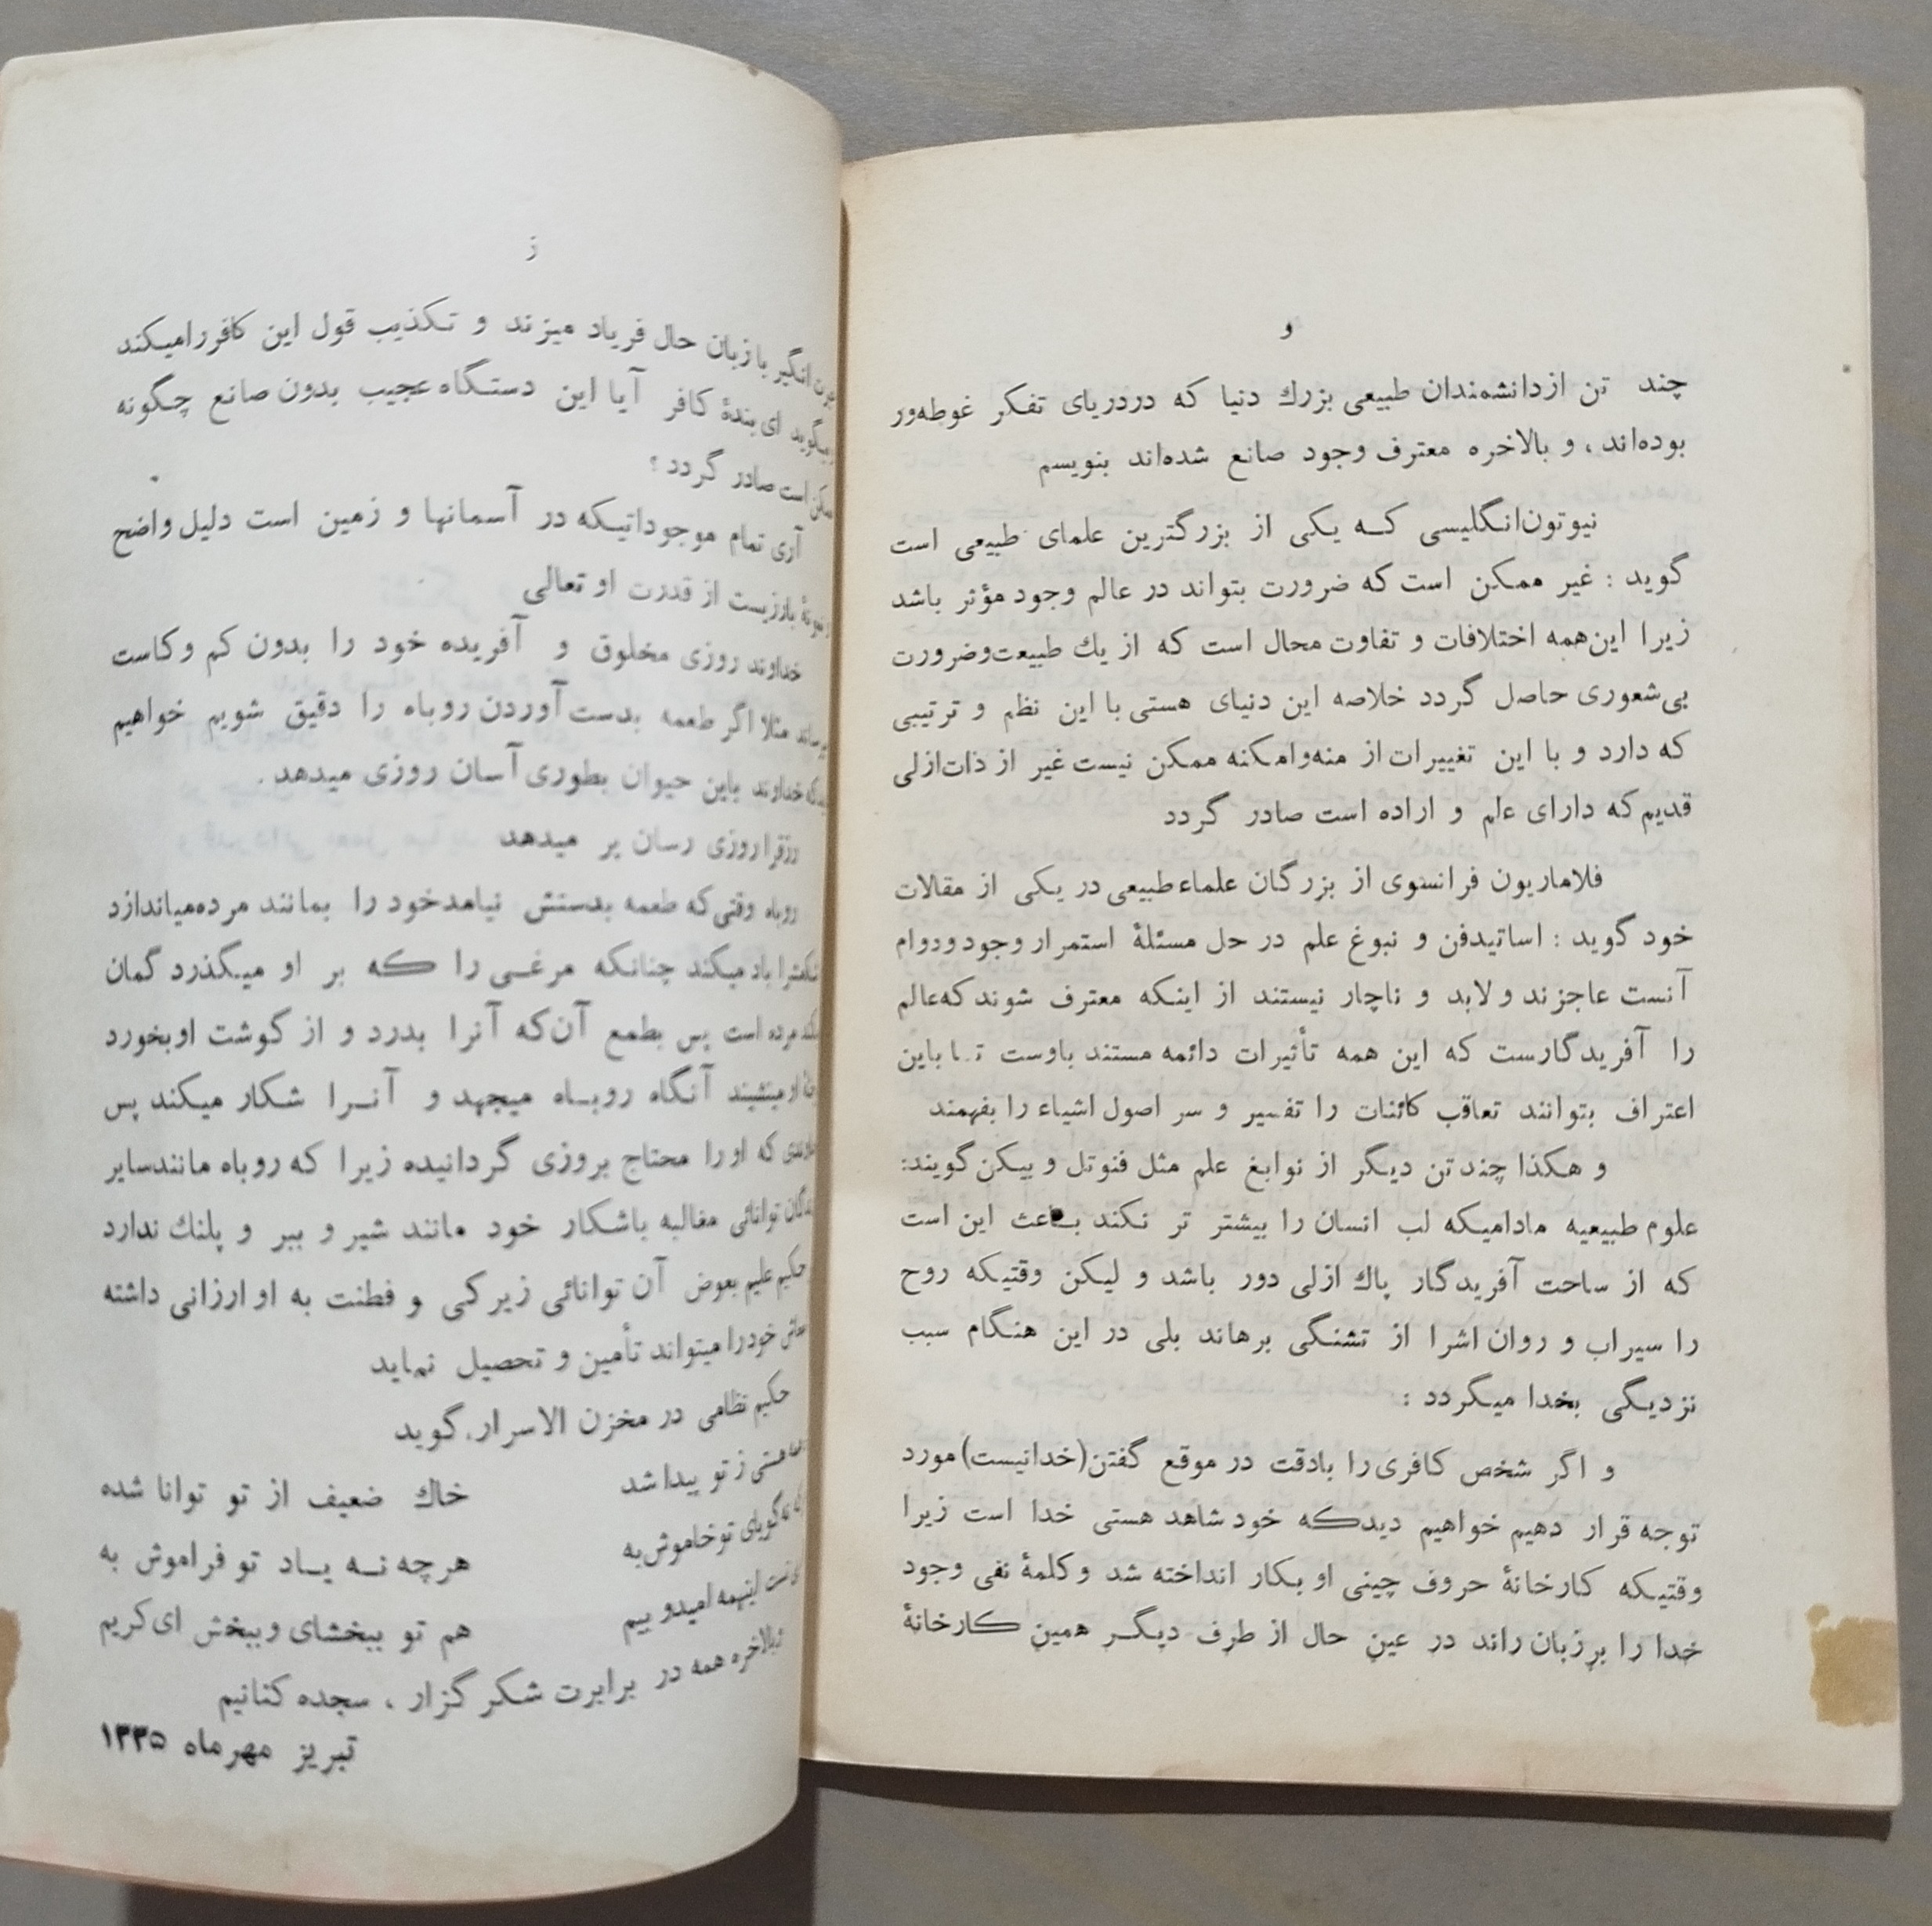 و
چند تن ازدانشمندان طبیعی بزرك دنیا که دردریای تفکر غوطه‌ور
بوده‌اند ، و بالاخره معترف وجود صانع شده‌اند بنویسم
نیوتون‌انگلیسی کـه یکی از بزرگترین علمای طبیعی است
گوید : غیر ممکن است که ضرورت بتواند در عالم وجود مؤثر باشد
زیرا این‌همه اختلافات و تفاوت محال است که از یك طبیعت‌وضرورت
بی‌شعوری حاصل گردد خلاصه این دنیای هستی با این نظم و ترتیبی
که دارد و با این تغییرات از منه‌وامکنه ممکن نیست غیر از ذات‌ازلی
قدیم‌که دارای علم و اراده است صادر گردد
فلاماریون فرانسوی از بزرگان علماءطبیعی در یکی از مقالات
خود گوید : اساتیدفن و نبوغ علم در حل مسئلهٔ استمرار وجود ودوام
آنست عاجزند و لابد و ناچار نیستند از اینکه معترف شوند که‌عالم
را آفریدگارست که این همه تأثیرات دائمه مستند باوست تـا باین
اعتراف بتوانند تعاقب کائنات را تفسیر و سر اصول اشیاء را بفهمند
و هکذا چند تن دیگر از نوابغ علم مثل فنوتل و بیکن گویند:
علوم طبیعیه مادامیکه لب انسان را بیشتر تر نکند بـاعث این است
که از ساحت آفریدگار پاك ازلی دور باشد و لیکن وقتیکه روح
را سیراب و روان اشرا از تشنگی برهاند بلی در این هنگام سبب
نزدیـگی بخدا میـگردد :
و اگر شخص کافری را بادقت در موقع گفتن(خدانیست)مورد
توجه قرار دهیم خواهیم دیدکه خود شاهد هستی خدا است زیرا
وقتیـکه کارخانهٔ حروف چینی او بـکار انداخته شد و کلمهٔ نفی وجود
خدا را بر زبان راند در عین حال از طرف دیـگـر همین کارخانهٔ
ز
انگیر با زبان حال فریاد میزند و تـکذیب قول این کافررامیـکند
میگوید ای بندهٔ کافر آیا این دستـگاه عجیب بدون صانع چـگونه
است صادر گردد ؟
آری تمام موجوداتیـکه در آسمانها و زمین است دلیل واضح
بارزیست از قدرت او تعالی
خداوند روزی مخلوق و آفریده خود را بدون کم و کاست
مثلا اگر طعمه بدست آوردن روباه را دقیق شویم خواهیم
که خداوند باین حیوان بطوری آسان روزی میدهد .
رزقرا روزی رسان پر میدهد
روباه وقتی‌که طعمه بدستش نیامدخود را بمانند مرده‌میاندازد
باد میکند چنانکه مرغـی را کـه بر او میـگذرد گمان
مرده است پس بطمع آن‌که آنرا بدرد و از گوشت اوبخورد
او مینشیند آنگاه روبـاه میجهد و آنـرا شکار میکند پس
که او را محتاج بروزی گردانیده زیرا که روباه مانندسایر
توانائی مغالبه باشکار خود مانند شیر و ببر و پلنك ندارد
حکیم علیم بعوض آن توانائی زیرکی و فطنت به او ارزانی داشته
خود را میتواند تأمین و تحصیل نماید
حکیم نظامی در مخزن الاسرار گوید
هستی ز تو پیدا شد خاك ضعیف از تو توانا شده
گویای تو خاموش به هرچه نـه یـاد تو فراموش به
اینهمه امیدو بیم هم تو ببخشای وببخش ای‌کریم
وبالاخره همه در برابرت شکر گزار ، سجده کنانیم
تبریز مهرماه ۱۳۳۵